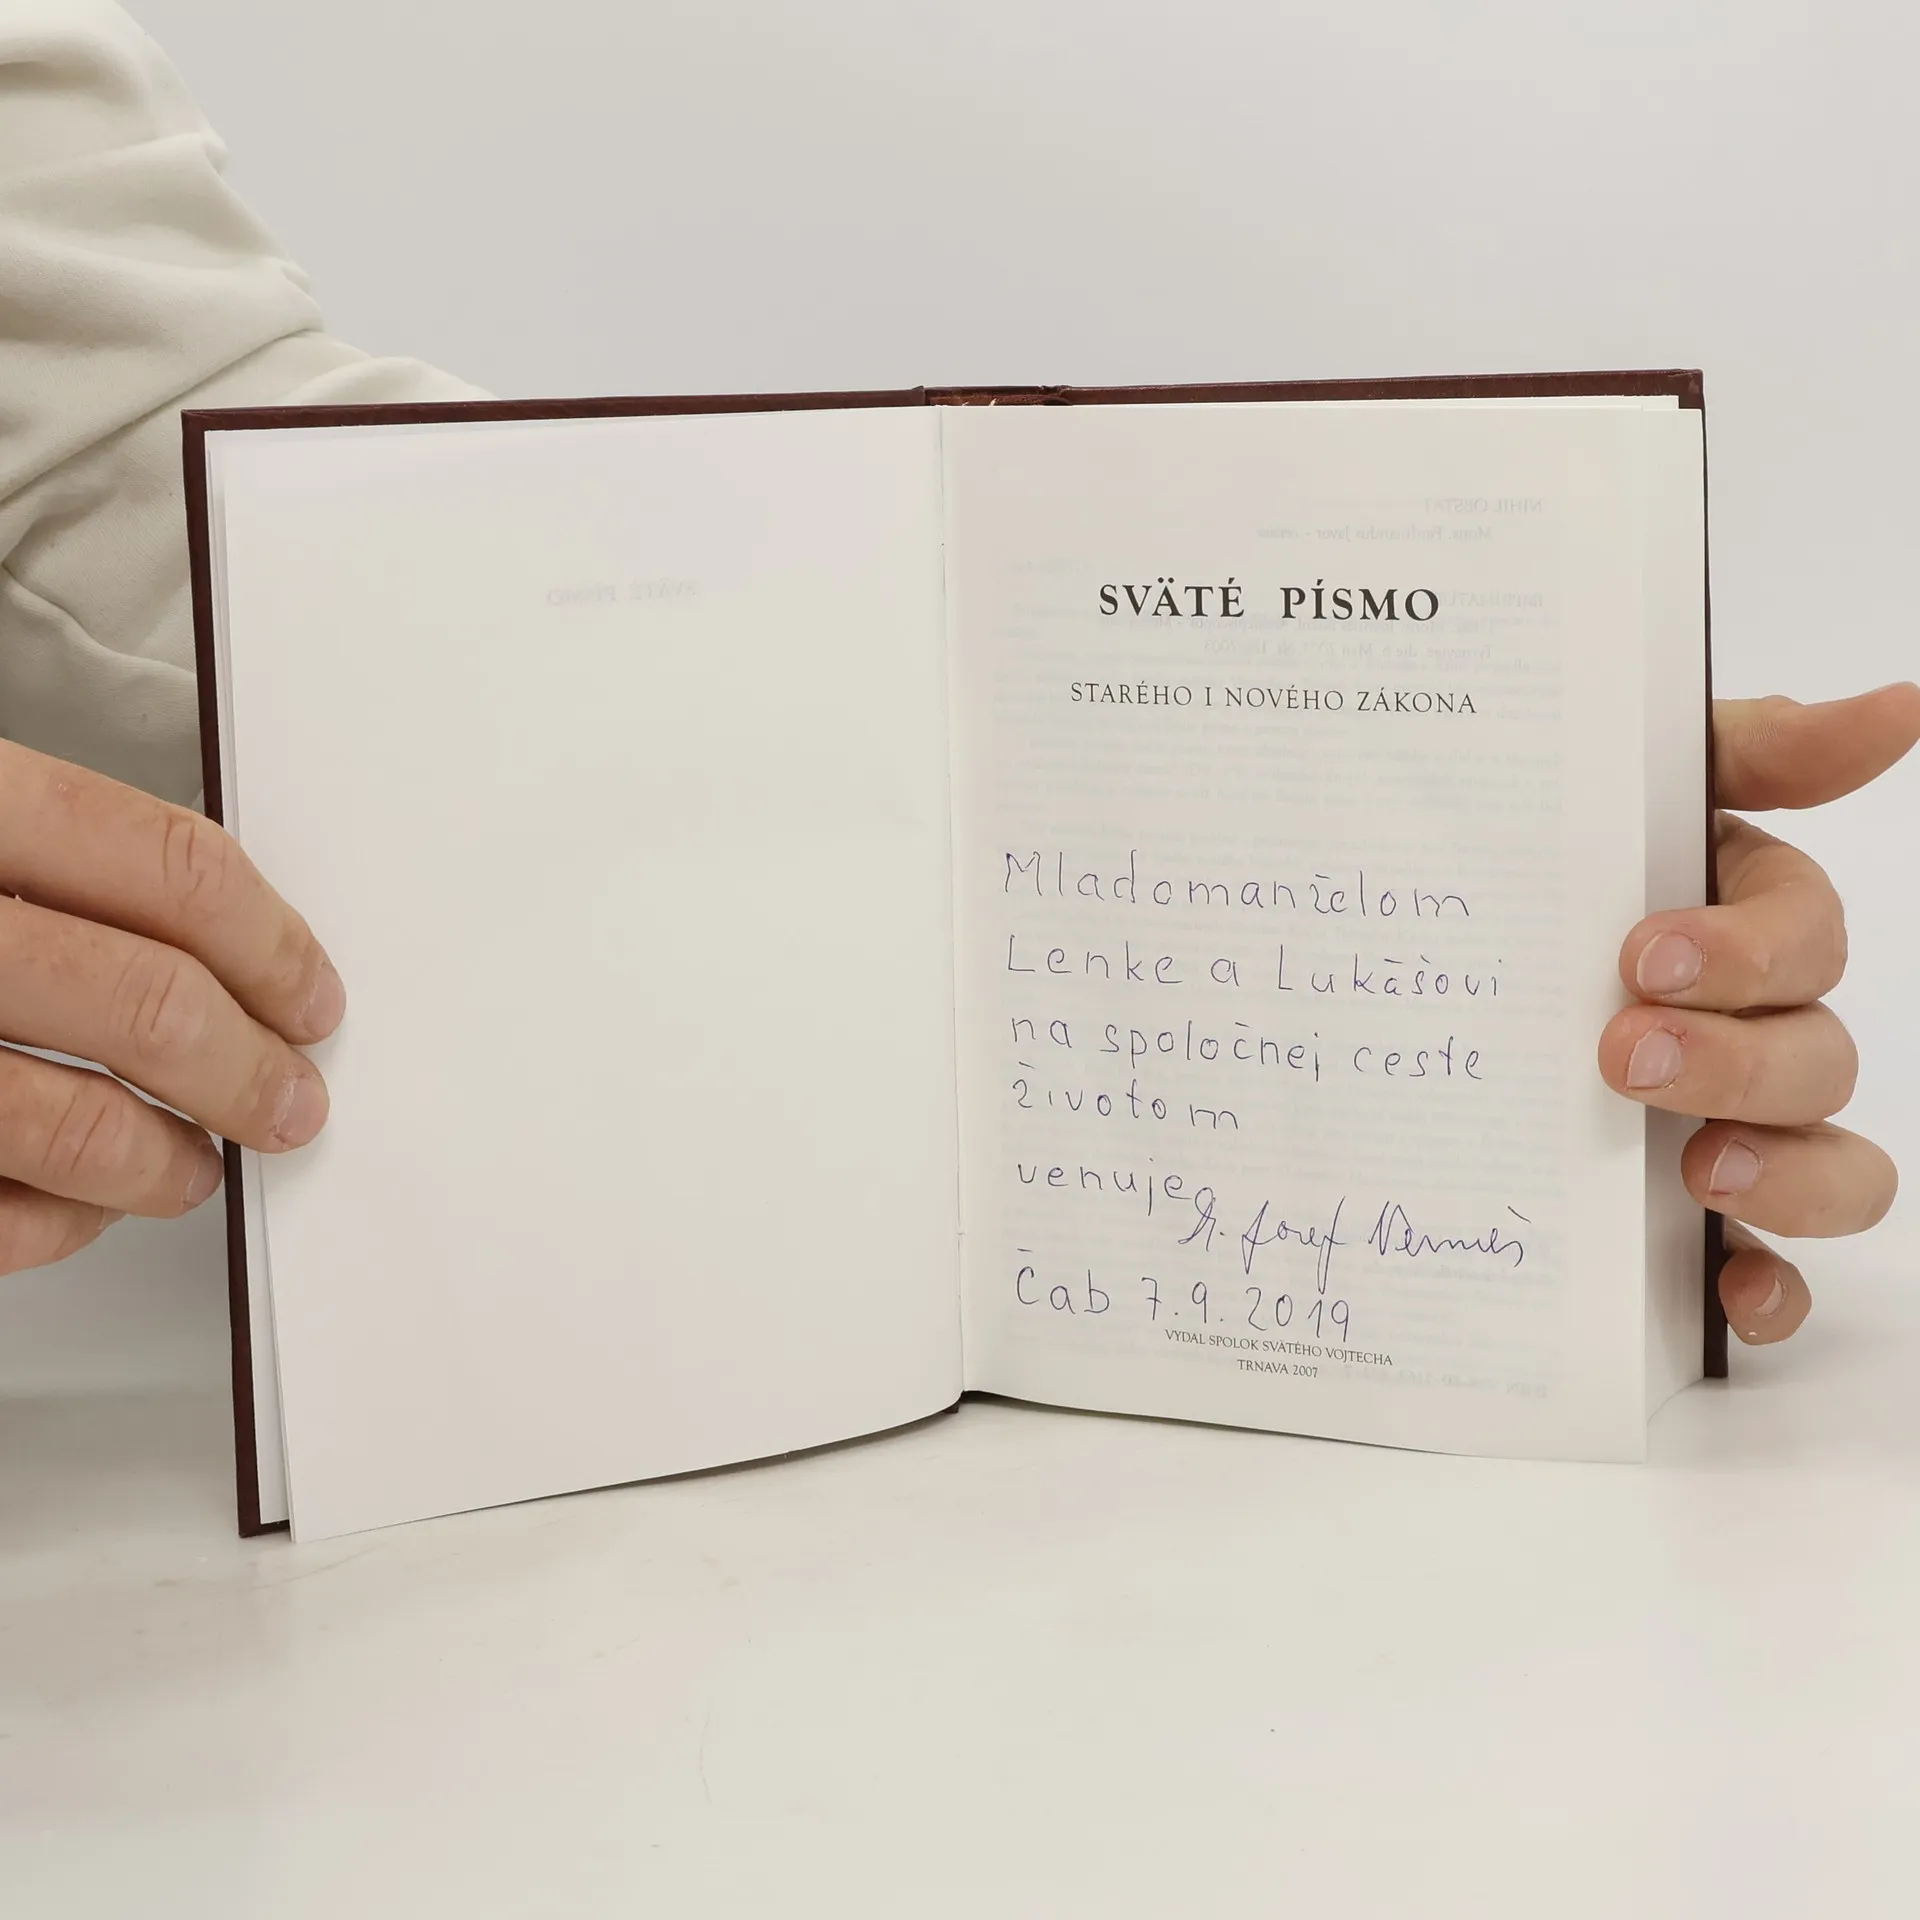 SVÄTÉ PÍSMO
STARÉHO I NOVÉHO ZÁKONA
Mladomanželom
Lenke a Lukášovi
na spoločnej ceste
životom
venuje
Jozef
Čab 7.9.2019
VYDAL SPOLOK SVÄTÉHO VOJTECHA
TRNAVA 2007